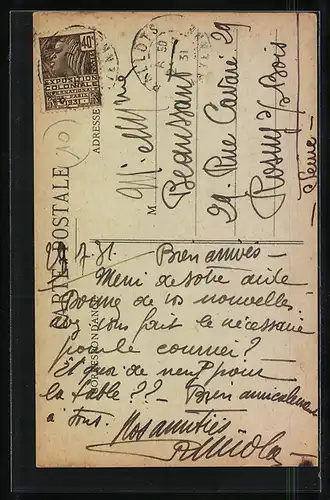 CARTE POSTALE
CORRESPONDANCE
ADRESSE
EXPOSITION
COLONIALE
INTERNATIONALE
PARIS 1931
40c
31
10
M. et Mme
M
Beaussant
29 Rue Cavaré 29
Rosny s/ Bois
Seine
7.31.
Bien arrivés –
Merci de votre aide
Donne de vos nouvelles
avez vous fait le nécessaire
pour le courrier ?
Et quoi de neuf pour
la table ?? – Bien amicalement
à tous.
Nos amitiés